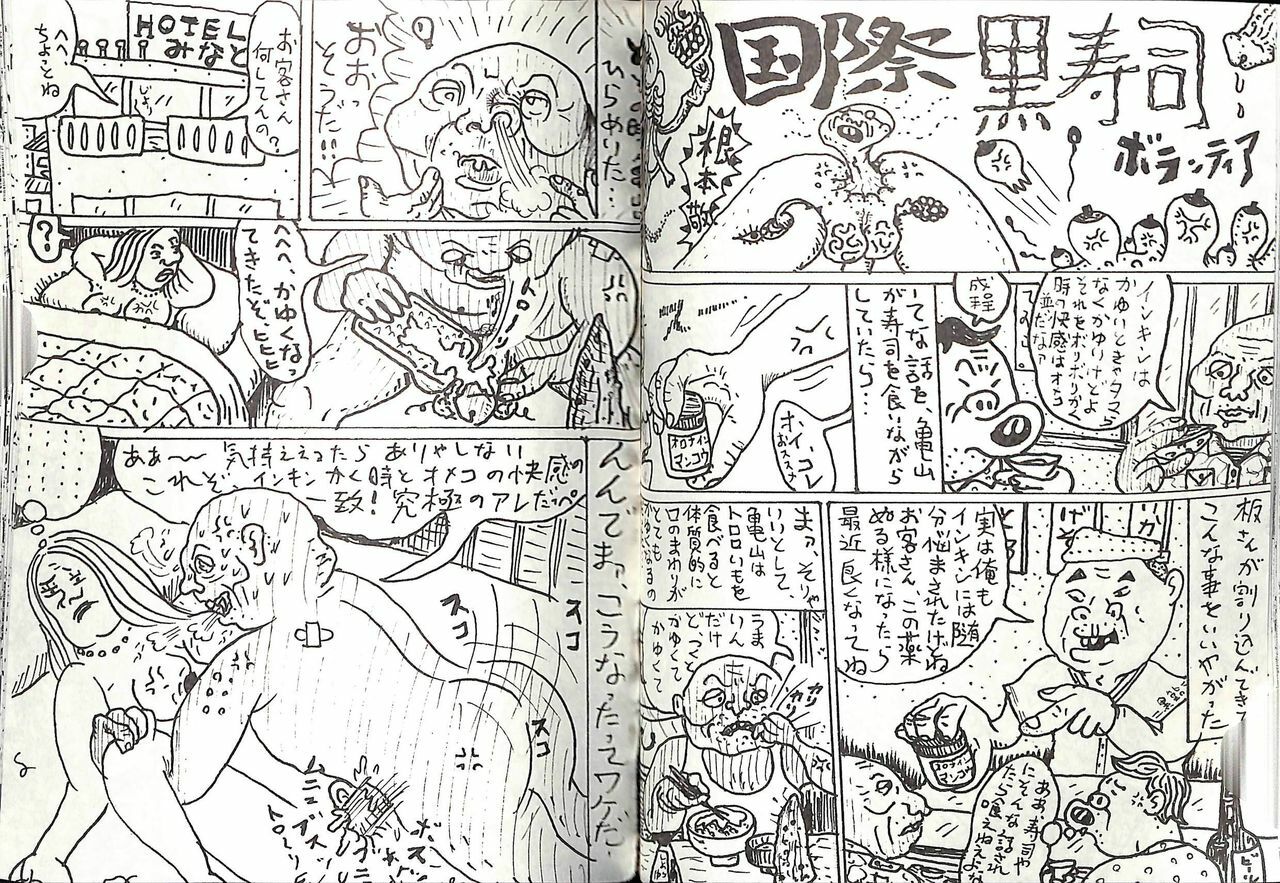 国際黒寿司
ボランティア
根本敬
インキンは
かゆいときゃタマラ
なくかゆいけどよ
それをボリボリかく
時の快感はオメコ
並だなァ
成程
いてな話を、亀山
が寿司を食いながら
していたら…
ホイ、コレ
おススメ
オロナイン
マンコウ
板さんが割り込んできて
こんな事をいいやがった
実は俺も
インキンには随
分悩まされたけどね
お客さん、この薬
ぬる様になったら
最近良くなってね
オロナイン
マンコウ
ああ、寿司や
にそんな話され
たら食えねえよな
まァ、そりゃ
いいとして、
亀山は
トロロいもを
食べると
体質的に
口のまわりが
とてもかゆくなるの
うま
いん
だけ
どっと
かゆくて
かゆくて
カリ
カリ
ひらめいた…
おお
そうだ!!
HOTEL
みなと
お客さん
何してんの?
へへ、
ちょっとね
へへへ、かゆくなっ
てきたぞ、ヒヒヒ
トロー
?
んでまァ、こうなったってワケだ
ああ〜気持ええったらありゃしない
これぞ、インキンかく時とオメコの快感の
一致!究極のアレだっペ
スコ
スコ
スコ